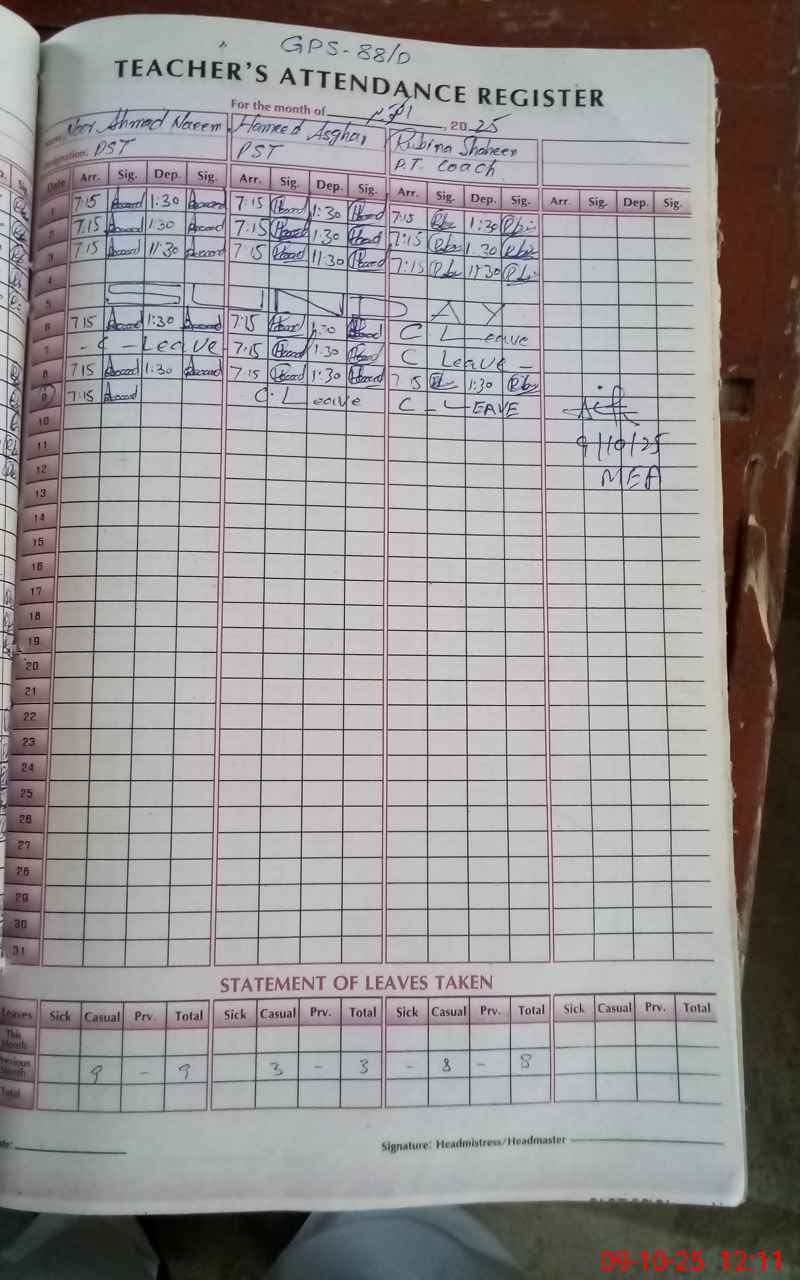 GPS-88/D
TEACHER'S ATTENDANCE REGISTER
For the month of اکتوبر, 2025
Noor Ahmad Naeem Hameed Asghar Rubina Shaheen
Designation: PST PST P.T. Coach
Date Arr. Sig. Dep. Sig. Arr. Sig. Dep. Sig. Arr. Sig. Dep. Sig. Arr. Sig. Dep. Sig.
1 7:15 1:30 7:15 1:30 7:15 1:30
2 7:15 1:30 7:15 1:30 7:15 1:30
3 7:15 11:30 7:15 11:30 7:15 11:30
4
5 SUNDAY
6 7:15 1:30 7:15 1:30 C Leave
7 - C - Leave 7:15 1:30 C Leave -
8 7:15 1:30 7:15 1:30 7:15 1:30
9 7:15 C.Leave C - LEAVE
10
11 9/10/25
12 MEA
13
14
15
16
17
18
19
20
21
22
23
24
25
26
27
28
29
30
31
STATEMENT OF LEAVES TAKEN
Leaves Sick Casual Prv. Total Sick Casual Prv. Total Sick Casual Prv. Total Sick Casual Prv. Total
This Month
Previous Month 9 - 9 3 - 3 - 8 - 8
Total
Signature: Headmistress/Headmaster
09-10-25 12:11